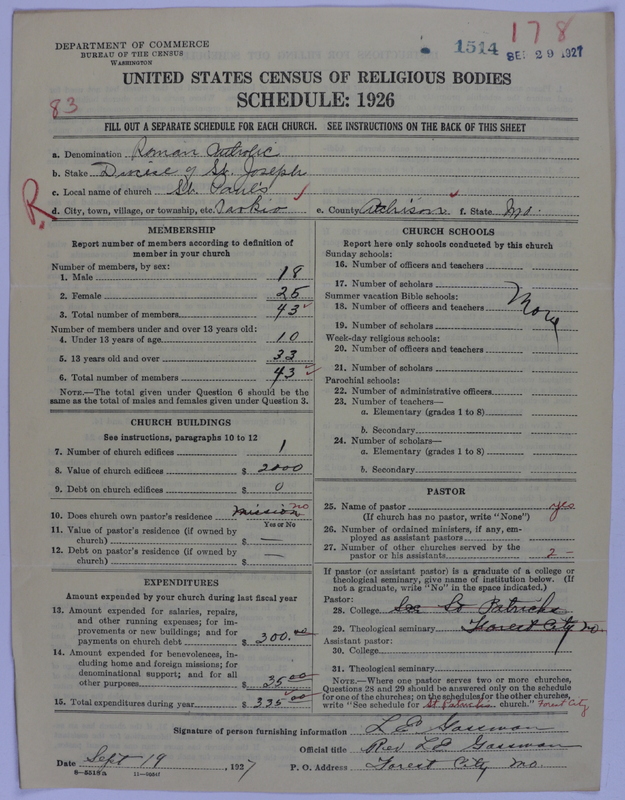 178
1514 SEP 29 1927
DEPARTMENT OF COMMERCE
BUREAU OF THE CENSUS
WASHINGTON
UNITED STATES CENSUS OF RELIGIOUS BODIES
SCHEDULE: 1926
83
FILL OUT A SEPARATE SCHEDULE FOR EACH CHURCH. SEE INSTRUCTIONS ON THE BACK OF THIS SHEET
a. Denomination Roman Catholic
b. Stake Diocese of St. Joseph
c. Local name of church St. Paul's
R
d. City, town, village, or township, etc. Tarkio e. County Atchison f. State Mo.
MEMBERSHIP
Report number of members according to definition of
member in your church
Number of members, by sex:
1. Male 18
2. Female 25
3. Total number of members 43
Number of members under and over 13 years old:
4. Under 13 years of age 10
5. 13 years old and over 33
6. Total number of members 43
NOTE.—The total given under Question 6 should be the
same as the total of males and females given under Question 3.
CHURCH BUILDINGS
See instructions, paragraphs 10 to 12
7. Number of church edifices 1
8. Value of church edifices $ 2000
9. Debt on church edifices $ 0
10. Does church own pastor's residence mission no
Yes or No
11. Value of pastor's residence (if owned by
church) $ —
12. Debt on pastor's residence (if owned by
church) $ —
EXPENDITURES
Amount expended by your church during last fiscal year
13. Amount expended for salaries, repairs,
and other running expenses; for im-
provements or new buildings; and for
payments on church debt $ 300.00
14. Amount expended for benevolences, in-
cluding home and foreign missions; for
denominational support; and for all
other purposes $ 35 00
15. Total expenditures during year $ 335 00
CHURCH SCHOOLS
Report here only schools conducted by this church
Sunday schools:
16. Number of officers and teachers
17. Number of scholars
Summer vacation Bible schools:
18. Number of officers and teachers
19. Number of scholars
Week-day religious schools:
20. Number of officers and teachers
21. Number of scholars
Parochial schools:
22. Number of administrative officers
23. Number of teachers—
a. Elementary (grades 1 to 8)
b. Secondary
24. Number of scholars—
a. Elementary (grades 1 to 8)
b. Secondary
PASTOR
25. Name of pastor yes
(If church has no pastor, write "None")
26. Number of ordained ministers, if any, em-
ployed as assistant pastors
27. Number of other churches served by the
pastor or his assistants 2 –
If pastor (or assistant pastor) is a graduate of a college or
theological seminary, give name of institution below. (If
not a graduate, write "No" in the space indicated.)
Pastor:
28. College See St Patricks
29. Theological seminary Forest City Mo.
Assistant pastor:
30. College
31. Theological seminary
NOTE.—Where one pastor serves two or more churches,
Questions 28 and 29 should be answered only on the schedule
for one of the churches; on the schedules for the other churches,
write "See schedule for St Patricks church." Forest City
Signature of person furnishing information
Official title Rev L E
Date Sept 19, 1927 P. O. Address Forest City Mo.
8—5518a